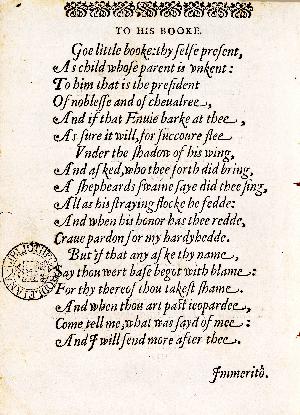 TO HIS BOOKE.
Goe little booke: thy selfe present,
As child whose parent is vnkent:
To him that is the president
Of noblesse and of cheualree,
And if that Enuie barke at thee,
As sure it will, for succoure flee
Vnder the shadow of his wing,
And asked, who thee forth did bring,
A shepheards swaine saye did thee sing,
All as his straying flocke he fedde:
And when his honor has thee redde,
Craue pardon for my hardyhedde.
But if that any aske thy name,
Say thou wert base begot with blame:
For thy thereof thou takest shame.
And when thou art past ieopardee,
Come tell me, what was sayd of mee:
And I will send more after thee.
Immeritô.